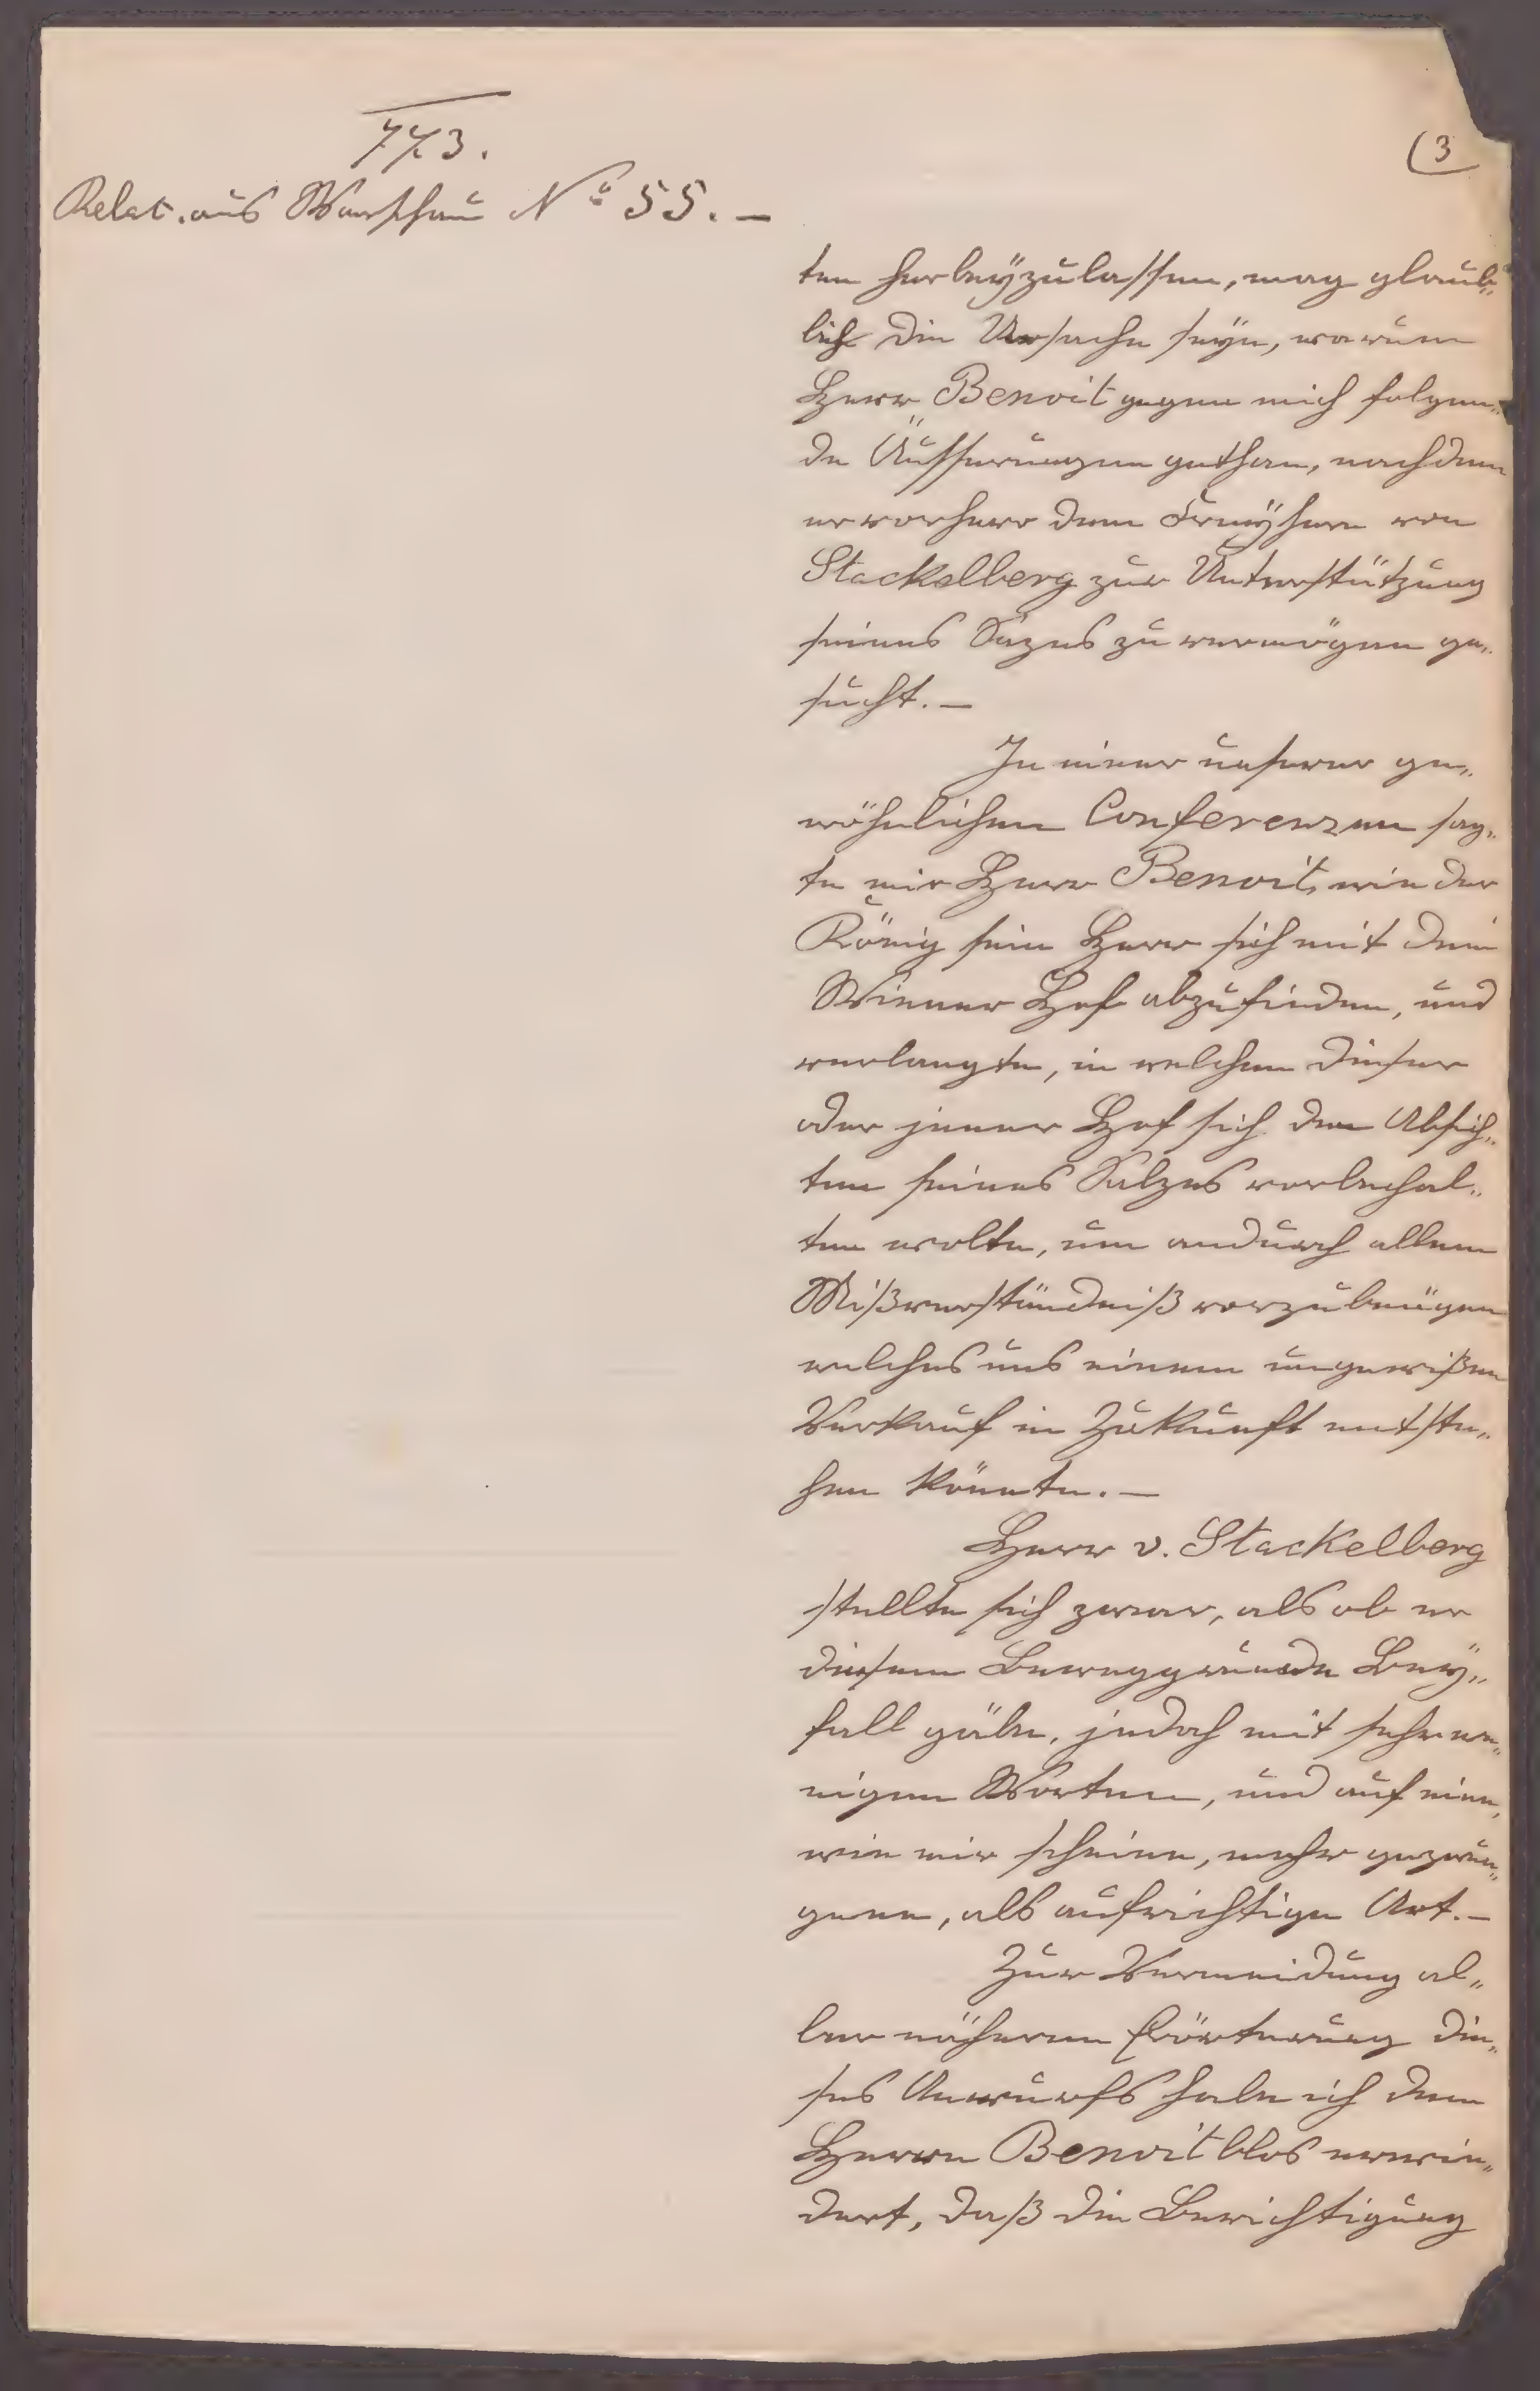 773.
(3
Relat. aus Warschau No 55. –
ten herbeÿzulassen, mag glaub„
lich die Ursache seÿn, warum
Herr Benoit gegen mich folgen„
de Äusserungen gethan, nachdem
er vorherr dem Freÿherrn von
Stackelberg zur Unterstützung
seines Sazes zu vermögen ge„
sucht. –
In einer unserer ge„
wöhnlichen Conferenzen sag„
te mir Herr Benoit, wie der
König sein Herr sich mit dem
Wiener Hof abzufinden, und
verlangte, in welchen dieser
oder jener Hof sich den Absich„
ten seines Salzes vorbehal„
ten wolte, um andurch allem
Mißverständniß vorzubeügen
welches uns einem ungewißen
Verkauf in Zukunft entste„
hen könnte. –
Herr v. Stackelberg
stellte sich zwar, als ob er
diesem Beweggrunde Beÿ„
fall gäbe, jedoch mit sehr we„
nigen Worten, und auf eine,
wie mir scheine, mehr gezwun„
gene, als aufrichtige Art. –
Zur Vermeidung al„
ler näheren Erörterung die„
ses Anwurfs habe ich dem
Herrn Benoit blos erwie„
dert, daß die Berichtigung